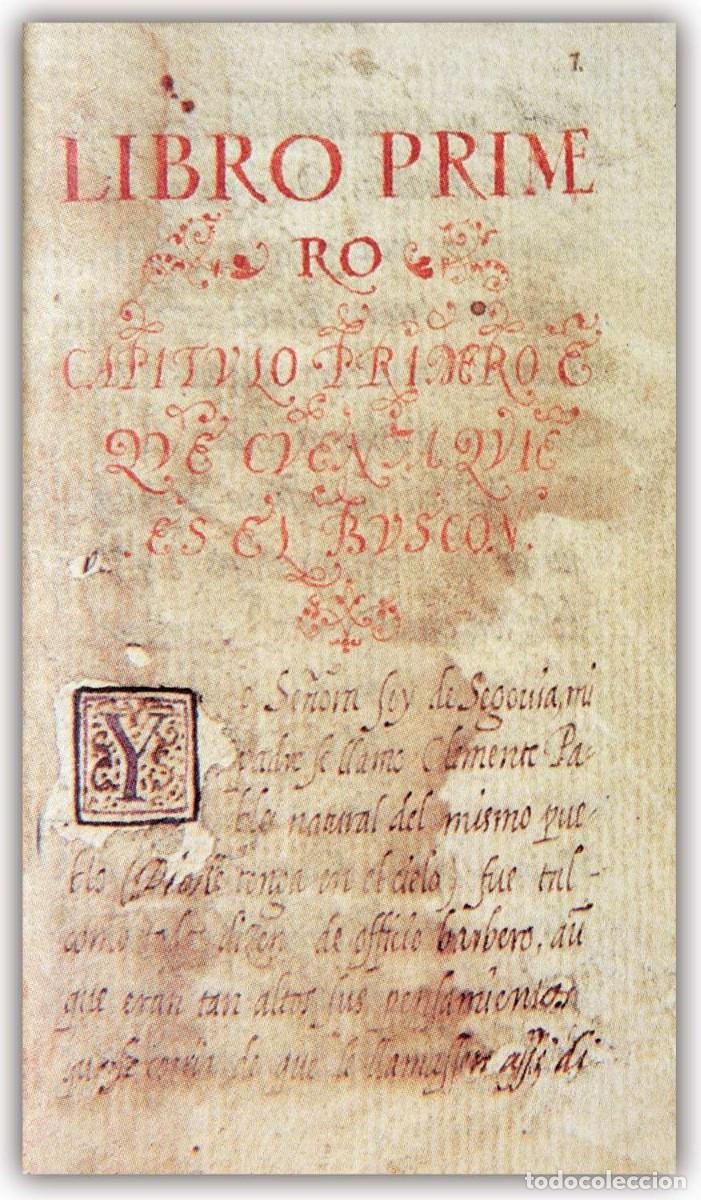 1.
LIBRO PRIME
RO
CAPITVLO PRIMERO E
QVE CVENTA QVIE
ES EL BVSCON.
Yo Señora soy de Segouia, mi
padre se llamo Clemente Pa-
blo natural del mismo pue-
blo (Dios le tenga en el cielo) fue tal-
como todos dizen de officio barbero, aũ
que eran tan altos sus pensamientos
que se corria de que le llamassen assi, di-
todocoleccion